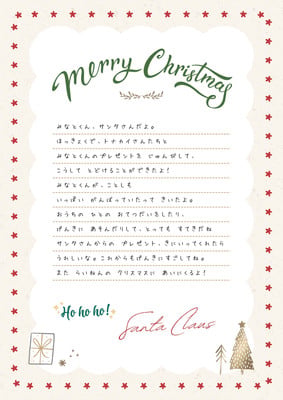 Merry Christmas
みなとくん、サンタさんだよ。
ほっきょくで、トナカイさんたちと
みなとくんのプレゼントを じゅんびして、
こうして とどけることができたよ！
みなとくんが、ことしも
いっぱい がんばっていたって きいたよ。
おうちの ひとの おてつだいをしたり、
げんきに あそんだりして、とっても すてきだね
サンタさんからの プレゼント、きにいってくれたら
うれしいな。これからもげんきにすごしてね。
また らいねんの クリスマスに あいにくるよ！
Ho ho ho!
Santa Claus